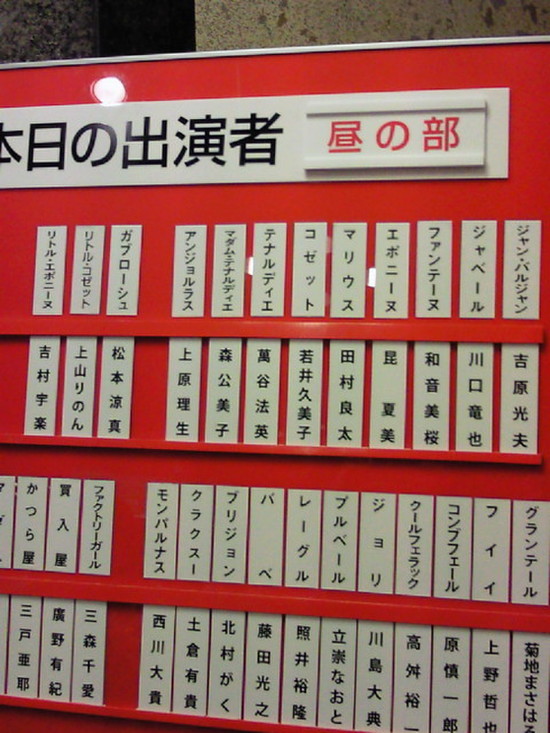 本日の出演者 昼の部
ジャン・バルジャン
ジャベール
ファンテーヌ
エポニーヌ
マリウス
コゼット
テナルディエ
マダム・テナルディエ
アンジョルラス
ガブローシュ
リトル・コゼット
リトル・エポニーヌ
吉原光夫
川口竜也
和音美桜
昆夏美
田村良太
若井久美子
萬谷法英
森公美子
上原理生
松本涼真
上山りのん
吉村宇楽
グランテール
フイイ
コンブフェール
クールフェラック
ジョリ
プルベール
レーグル
バベ
ブリジョン
クラクスー
モンパルナス
ファクトリーガール
買入屋
かつら屋
菊地まさはる
上野哲也
原慎一郎
高舛裕一
川島大典
立崇なおと
照井裕隆
藤田光之
北村がく
土倉有貴
西川大貴
三森千愛
廣野有紀
三戸亜耶